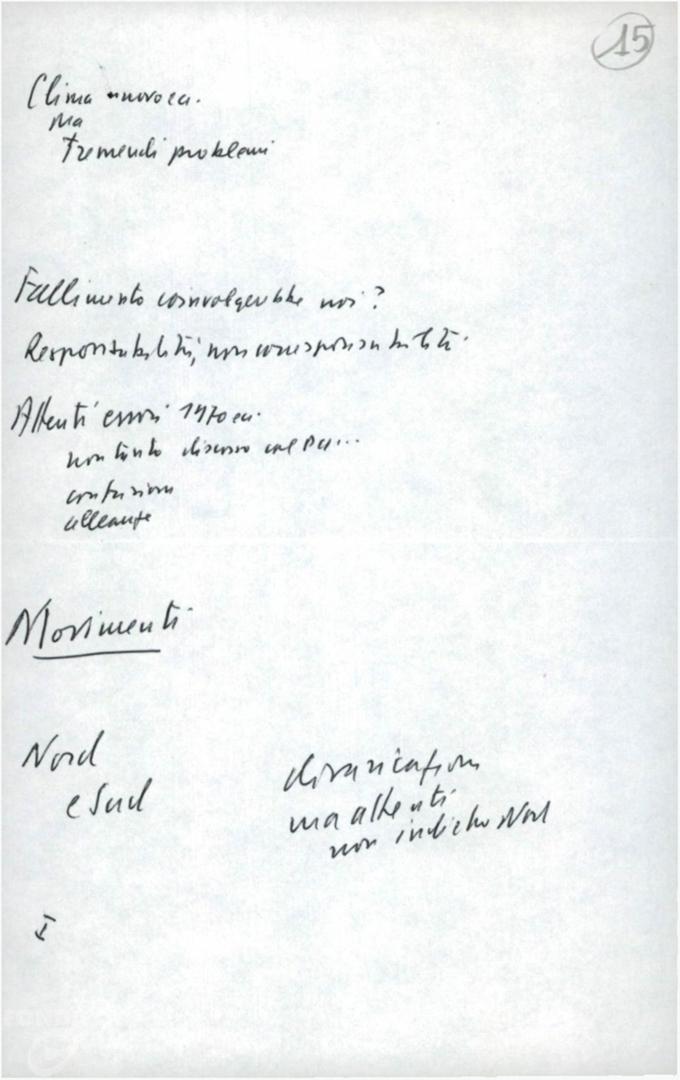 15
Clima nuovo ca.
ma
Tremendi problemi
Fallimento coinvolgerebbe noi?
Responsabilità, non corresponsabilità.
Attenti errori 1970 ca.
non tanto discorso col PCI...
confusione
alleanze
Movimenti
Nord
e Sud
divaricazione
ma attenti
non indietro Nord